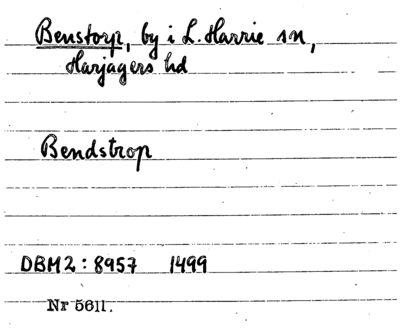 Benstorp, by i L. Harrie sn,
Harjagers hd
Bendstrop
DBM2: 8957 1499
Nr 5611.